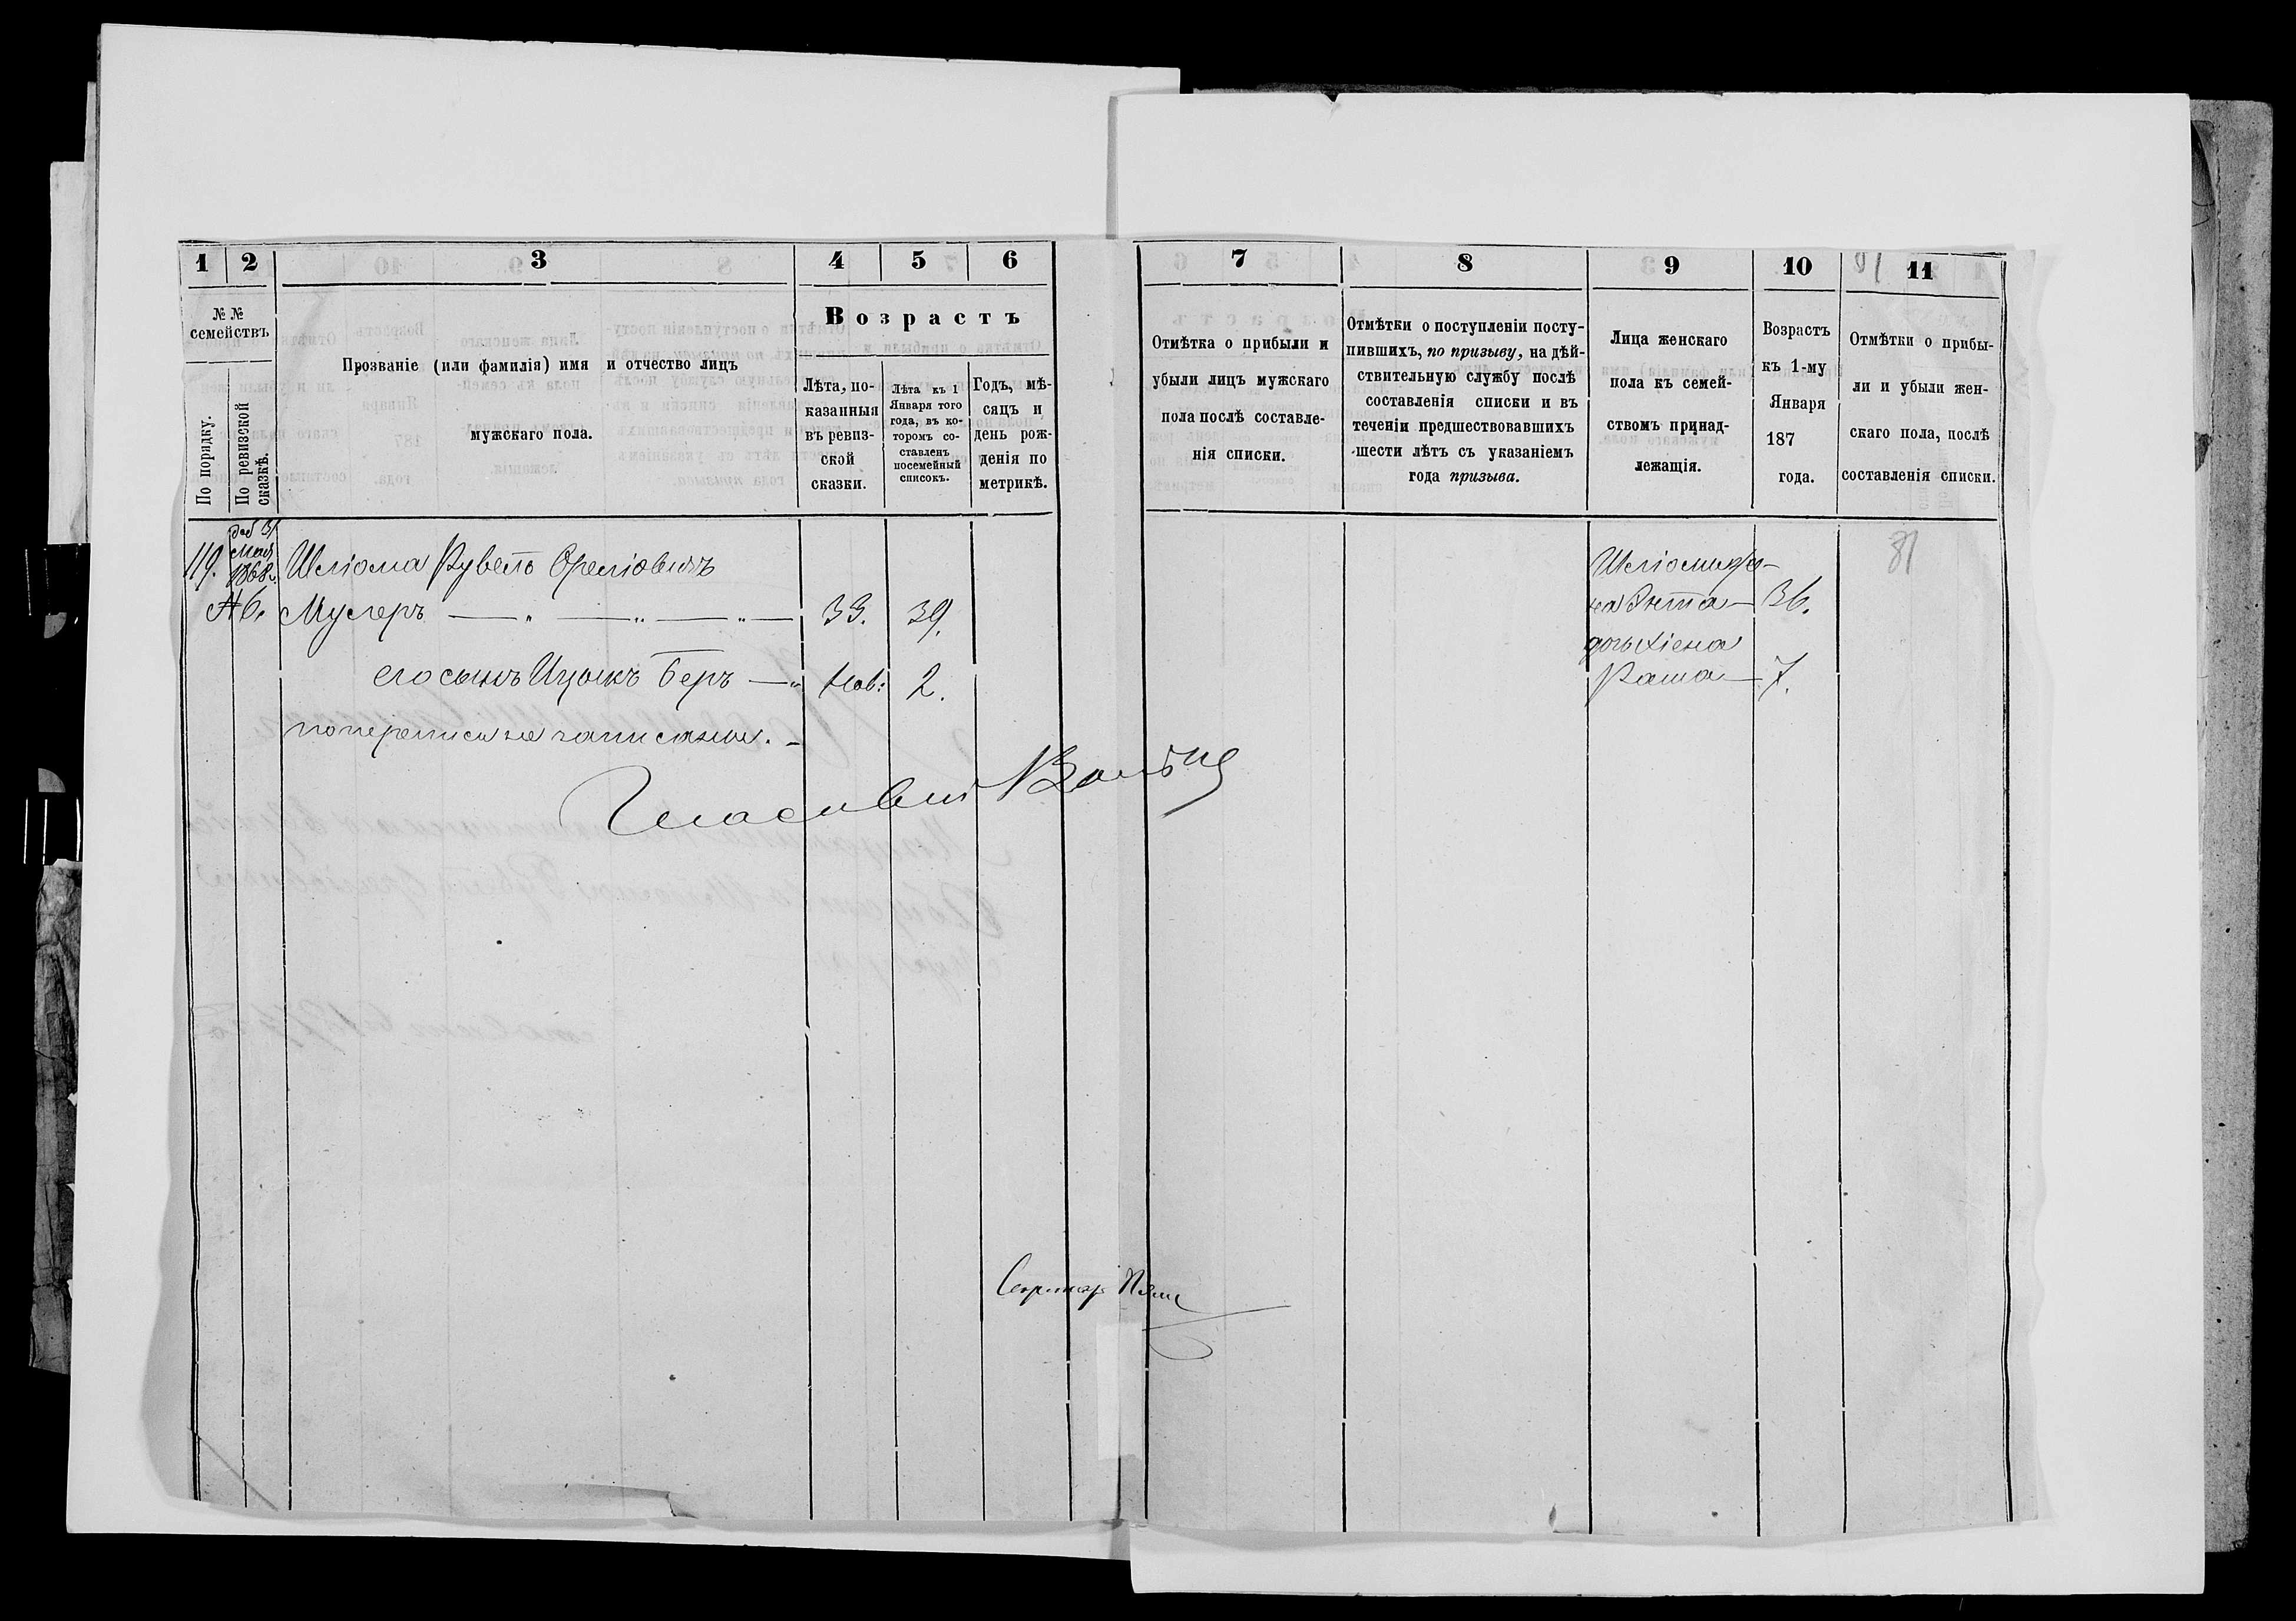 1 2 3 4 5 6
№ № семействъ
По порядку.
По ревизской сказкѣ.
Прозваніе (или фамилія) имя и отчество лицъ
мужскаго пола.
Возрастъ
Лѣта, по-
казанныя
въ ревиз-
ской
сказки.
Лѣта къ 1
Января того
года, въ ко-
торомъ со-
ставленъ
посемейный
списокъ.
Годъ, мѣ-
сяцъ и
день рож-
денія по
метрикѣ.
119. 31 Мая 1868 г. Шліома Рувелъ Ореліовичъ
№ 6. Мулеръ 33. 39.
его сынъ Ицыкъ Беръ нов: 2.
по переписи не записаны.
7 8 9 10 11
Отмѣтка о прибыли и
убыли лицъ мужскаго
пола послѣ составле-
нія списки.
Отмѣтки о поступленіи посту-
пившихъ, по призыву, на дѣй-
ствительную службу послѣ
составленія списки и въ
теченіи предшествовавшихъ
шести лѣтъ съ указаніемъ
года призыва.
Лица женскаго
пола къ семей-
ствомъ принад-
лежащія.
Возрастъ
къ 1-му
Января
187
года.
Отмѣтки о прибы-
ли и убыли жен-
скаго пола, послѣ
составленія списки.
81
Шліомы же-
на Энта 36.
дочь Хіена
Раша 7.
Секретарь